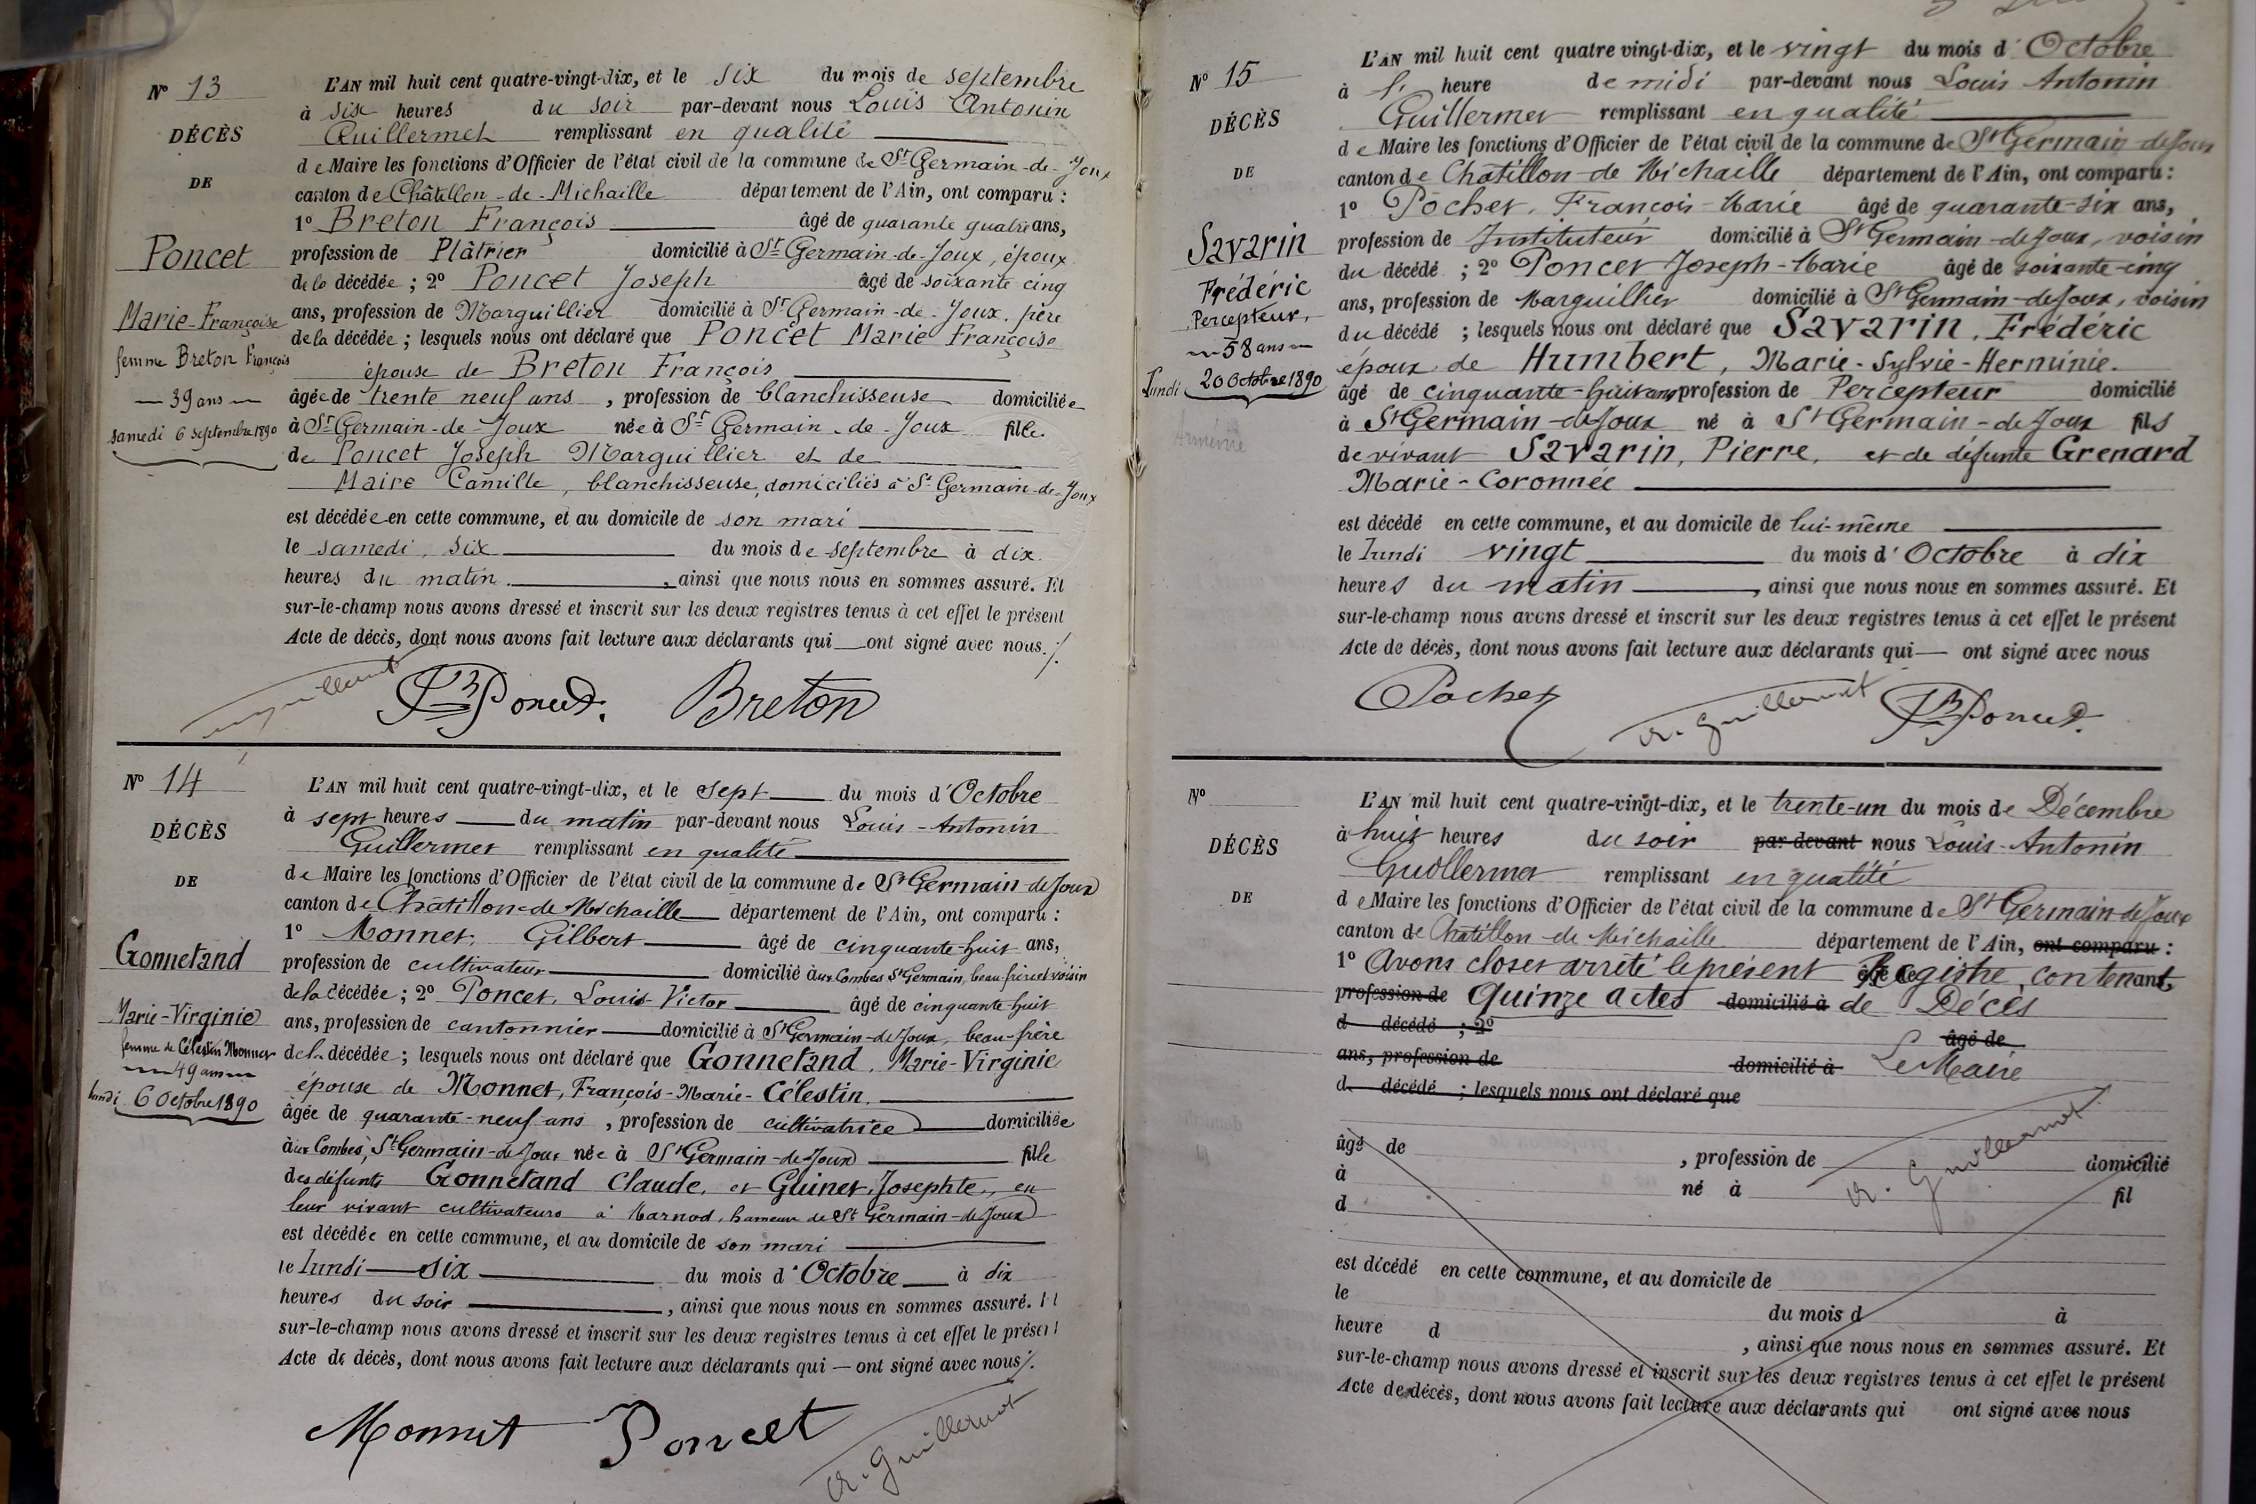 Nº 13
DÉCÈS
DE
Poncet
Marie-Françoise
femme Breton François
39 ans
samedi 6 septembre 1890
L'AN mil huit cent quatre-vingt-dix, et le six du mois de septembre
à six heures du soir par-devant nous Louis Antonin
Guillermet remplissant en qualité
de Maire les fonctions d'Officier de l'état civil de la commune de St Germain-de-Joux
canton de Châtillon-de-Michaille département de l'Ain, ont comparu :
1º Breton François âgé de quarante quatre ans,
profession de Plâtrier domicilié à St Germain-de-Joux, époux
de la décédée ; 2º Poncet Joseph âgé de soixante cinq
ans, profession de Marguillier domicilié à St Germain-de-Joux, père
de la décédée ; lesquels nous ont déclaré que Poncet Marie Françoise
épouse de Breton François
âgée de trente neuf ans , profession de blanchisseuse domiciliée
à St Germain-de-Joux née à St Germain-de-Joux fille
de Poncet Joseph Marguillier et de
Maire Camille, blanchisseuse, domiciliés à St Germain-de-Joux
est décédée en cette commune, et au domicile de son mari
le samedi, six du mois de septembre à dix
heures du matin , ainsi que nous nous en sommes assuré. Et
sur-le-champ nous avons dressé et inscrit sur les deux registres tenus à cet effet le présent
Acte de décès, dont nous avons fait lecture aux déclarants qui ont signé avec nous ./.
Guillermet Poncet Breton
Nº 14
DÉCÈS
DE
Gonnetand
Marie-Virginie
femme de Célestin Monnet
49 ans
lundi 6 Octobre 1890
L'AN mil huit cent quatre-vingt-dix, et le sept du mois d'Octobre
à sept heures du matin par-devant nous Louis-Antonin
Guillermet remplissant en qualité
de Maire les fonctions d'Officier de l'état civil de la commune de St Germain-de-Joux
canton de Châtillon-de-Michaille département de l'Ain, ont comparu :
1º Monnet, Gilbert âgé de cinquante-huit ans,
profession de cultivateur domicilié aux Combes St Germain, beau-frère et voisin
de la décédée ; 2º Poncet, Louis-Victor âgé de cinquante huit
ans, profession de cantonnier domicilié à St Germain-de-Joux, beau-frère
de la décédée ; lesquels nous ont déclaré que Gonnetand, Marie-Virginie
épouse de Monnet, François-Marie-Célestin,
âgée de quarante-neuf ans , profession de cultivatrice domiciliée
aux Combes, St Germain-de-Joux née à St Germain-de-Joux fille
des défunts Gonnetand Claude, et Guinet, Josephte, en
leur vivant cultivateurs à Marnod, hameau de St Germain-de-Joux
est décédée en cette commune, et au domicile de son mari
le lundi six du mois d'Octobre à dix
heures du soir , ainsi que nous nous en sommes assuré. Et
sur-le-champ nous avons dressé et inscrit sur les deux registres tenus à cet effet le présent
Acte de décès, dont nous avons fait lecture aux déclarants qui ont signé avec nous ./.
Monnet Poncet A. Guillermet
Nº 15
DÉCÈS
DE
Savarin
Frédéric
Percepteur,
58 ans
lundi 20 Octobre 1890
L'AN mil huit cent quatre vingt-dix, et le vingt du mois d'Octobre
à heure de midi par-devant nous Louis Antonin
Guillermet remplissant en qualité
de Maire les fonctions d'Officier de l'état civil de la commune de St Germain-de-Joux
canton de Châtillon-de-Michaille département de l'Ain, ont comparu :
1º Pochet, François-Marie âgé de quarante-six ans,
profession de Instituteur domicilié à St Germain-de-Joux, voisin
du décédé ; 2º Poncet Joseph-Marie âgé de soixante-cinq
ans, profession de Marguillier domicilié à St Germain-de-Joux, voisin
du décédé ; lesquels nous ont déclaré que Savarin, Frédéric
époux de Humbert, Marie-Sylvie-Herminie.
âgé de cinquante-huit ans profession de Percepteur domicilié
à St Germain-de-Joux né à St Germain-de-Joux fils
de vivant Savarin, Pierre, et de défunte Grenard
Marie-Coronnée
est décédé en cette commune, et au domicile de lui-même
le lundi vingt du mois d'Octobre à dix
heures du matin , ainsi que nous nous en sommes assuré. Et
sur-le-champ nous avons dressé et inscrit sur les deux registres tenus à cet effet le présent
Acte de décès, dont nous avons fait lecture aux déclarants qui ont signé avec nous
Pochet A. Guillermet Poncet
Nº
DÉCÈS
DE
L'AN mil huit cent quatre-vingt-dix, et le trente-un du mois de Décembre
à huit heures du soir par devant nous Louis-Antonin
Guillermet remplissant en qualité
de Maire les fonctions d'Officier de l'état civil de la commune de St Germain-de-Joux
canton de Châtillon-de-Michaille département de l'Ain, ont comparu :
1º Avons clos et arrêté le présent âgé de Registre, contenant
profession de Quinze actes domicilié à de Décès
d décédé ; 2º âgé de
ans, profession de domicilié à Le Maire
d décédé ; lesquels nous ont déclaré que
A. Guillermet
âgé de , profession de domicilié
à né à fil
d
est décédé en cette commune, et au domicile de
le du mois d à
heure d , ainsi que nous nous en sommes assuré. Et
sur-le-champ nous avons dressé et inscrit sur les deux registres tenus à cet effet le présent
Acte de décès, dont nous avons fait lecture aux déclarants qui ont signé avec nous